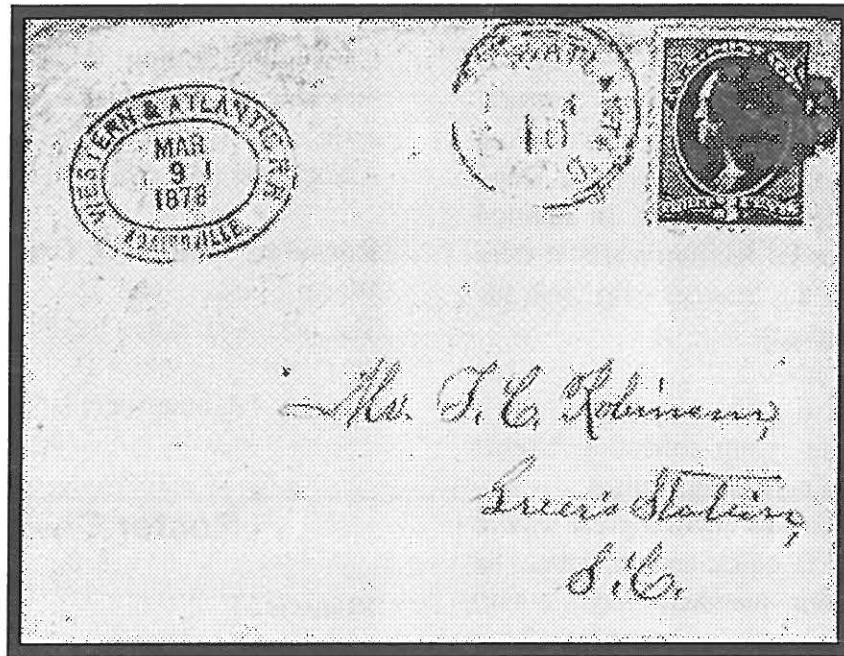 WESTERN & ATLANTIC R.R.
MAR
9
1878
ADAIRSVILLE.
Mr. T. C. Robinson,
Greer's Station,
S.C.